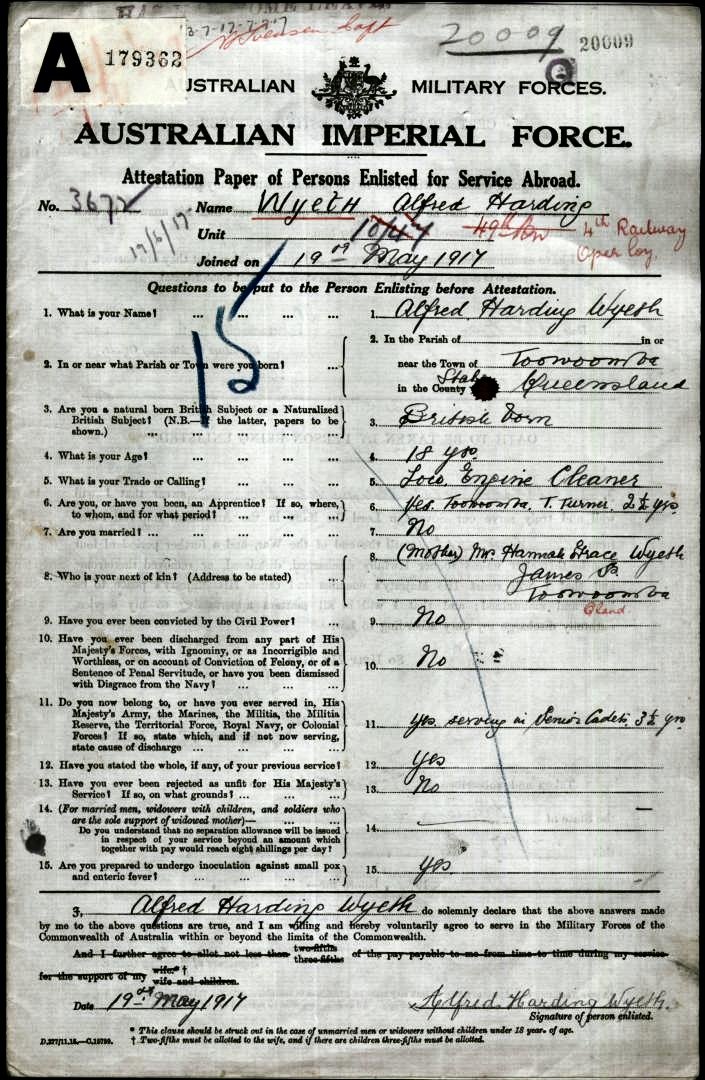 A 179362
20009 20009
AUSTRALIAN MILITARY FORCES.
AUSTRALIAN IMPERIAL FORCE.
Attestation Paper of Persons Enlisted for Service Abroad.
No. 3672 Name WyetH Alfred Harding
Unit 49th Bn 4th Railway
Oper Coy.
17/6/17
Joined on 19th May 1917
Questions to be put to the Person Enlisting before Attestation.
15
1. What is your Name? ... ... ... ... 1. Alfred Harding Wyeth
2. In or near what Parish or Town were you born? ... 2. In the Parish of in or
near the Town of Toowoomba
in the County State Queensland
3. Are you a natural born British Subject or a Naturalized
British Subject? (N.B.—If the latter, papers to be
shown.) ... ... ... ... 3. British born
4. What is your Age? ... ... ... ... 4. 18 yrs.
5. What is your Trade or Calling? ... ... ... 5. Loco. Engine Cleaner
6. Are you, or have you been, an Apprentice? If so, where,
to whom, and for what period? ... ... ... 6. Yes. Toowoomba. T. Turner. 2½ yrs.
7. Are you married? ... ... ... ... ... 7. No
8. Who is your next of kin? (Address to be stated) ... 8. (Mother) Mrs Hannah Grace Wyeth
James St.
Toowoomba
Qland
9. Have you ever been convicted by the Civil Power? ... 9. No
10. Have you ever been discharged from any part of His
Majesty's Forces, with Ignominy, or as Incorrigible and
Worthless, or on account of Conviction of Felony, or of a
Sentence of Penal Servitude, or have you been dismissed
with Disgrace from the Navy? ... ... ... 10. No
11. Do you now belong to, or have you ever served in, His
Majesty's Army, the Marines, the Militia, the Militia
Reserve, the Territorial Force, Royal Navy, or Colonial
Forces? If so, state which, and if not now serving,
state cause of discharge ... ... ... ... 11. Yes. serving in Senior Cadets. 3½ yrs
12. Have you stated the whole, if any, of your previous service? 12. Yes
13. Have you ever been rejected as unfit for His Majesty's
Service? If so, on what grounds? ... ... ... 13. No
14. (For married men, widowers with children, and soldiers who
are the sole support of widowed mother)—
Do you understand that no separation allowance will be issued
in respect of your service beyond an amount which
together with pay would reach eight shillings per day? 14.
15. Are you prepared to undergo inoculation against small pox
and enteric fever? ... ... ... ... 15. Yes.
I, Alfred Harding Wyeth do solemnly declare that the above answers made
by me to the above questions are true, and I am willing and hereby voluntarily agree to serve in the Military Forces of the
Commonwealth of Australia within or beyond the limits of the Commonwealth.
And I further agree to allot not less than two-fifths three-fifths of the pay payable to me from time to time during my service
for the support of my wife*† wife and children.
Date 19th May 1917 Alfred Harding Wyeth.
Signature of person enlisted.
* This clause should be struck out in the case of unmarried men or widowers without children under 18 years of age.
D.277/11.16.—C.16799. † Two-fifths must be allotted to the wife, and if there are children three-fifths must be allotted.